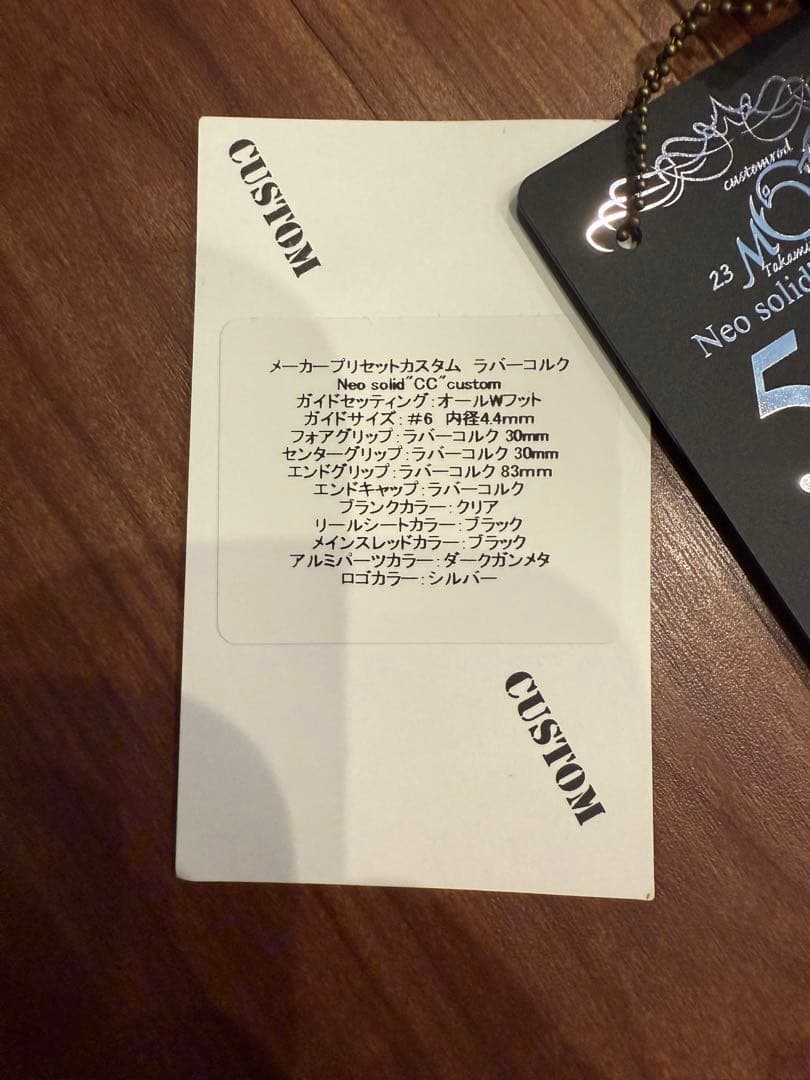 CUSTOM
メーカープリセットカスタム ラバーコルク
Neo solid"CC"custom
ガイドセッティング:オールWフット
ガイドサイズ:#6 内径4.4mm
フォアグリップ:ラバーコルク 30mm
センターグリップ:ラバーコルク 30mm
エンドグリップ:ラバーコルク 83mm
エンドキャップ:ラバーコルク
ブランクカラー:クリア
リールシートカラー:ブラック
メインスレッドカラー:ブラック
アルミパーツカラー:ダークガンメタ
ロゴカラー:シルバー
CUSTOM
customrod
23
Neo solid
5